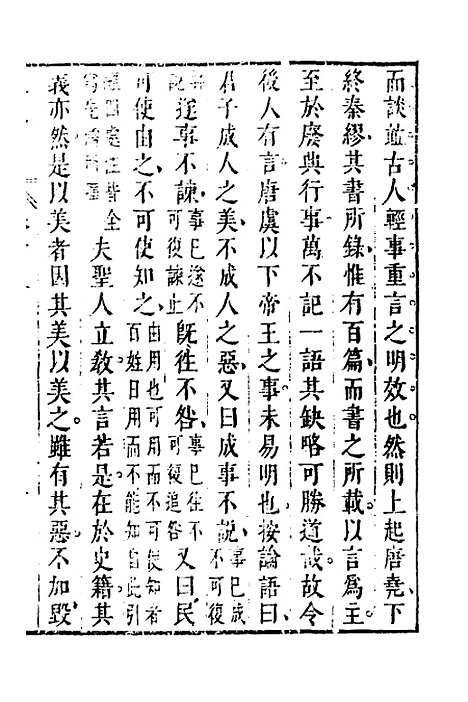 而談古人輕事重言之明效也然則上起唐堯下
終秦繆其書所錄惟有百篇而書之所載以言為主
至於廢興行事萬不記一語其缺略可勝道哉故令
後人有言唐虞以下帝王之事未易明也按論語曰
君子成人之美不成人之惡又曰成事不說事已成不可復
說遂事不諫事已遂不可復諫止既往不咎事已往不可復追咎又曰民
可使由之不可使知之由用也可用而不可使知者百姓日用而不能知自此引
經四處注皆全夫聖人立教其言若是在於史籍其
義亦然是以美者因其美以美之雖有其惡不加毀